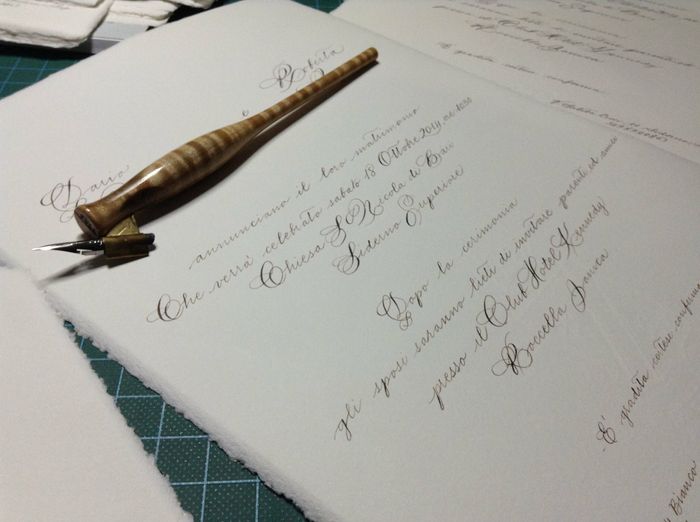 Dario
e
Roberta
annunciano il loro matrimonio
Che verrà celebrato sabato 18 Ottobre 2014 ore
Chiesa S. Nicola di Bari
Siderno Superiore
Dopo la cerimonia
gli sposi saranno lieti di invitare parenti ed amici
presso il Club Hotel Kennedy
Roccella Jonica
E' gradita cortese conferma
Bianco